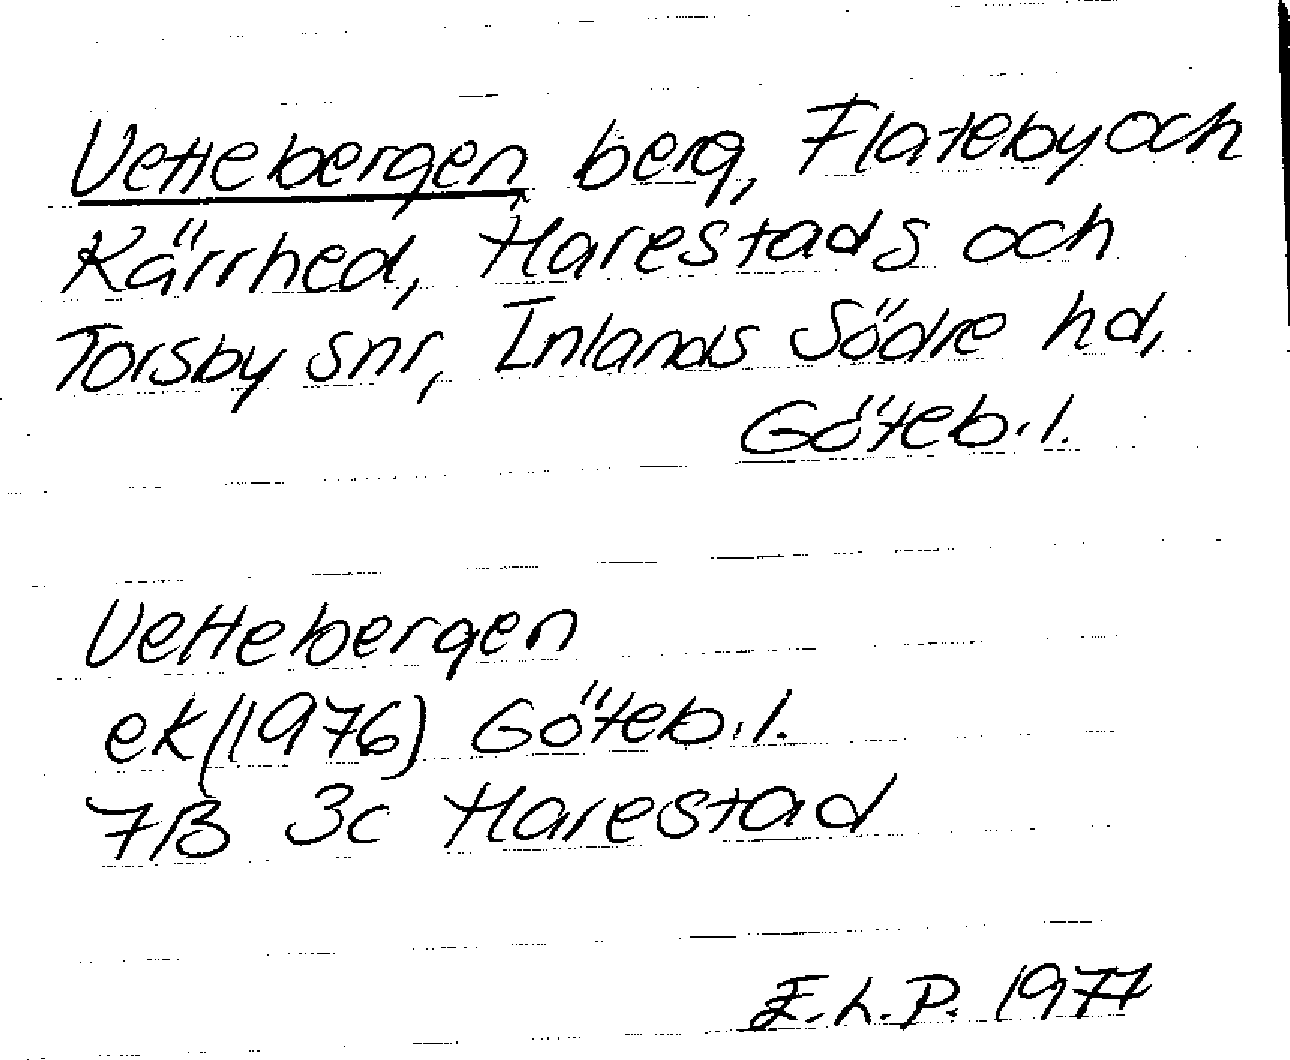 Vettebergen, berg, Flateby och
Kärrhed, Harestads och
Torsby snr, Inlands Södre hd,
Göteb.l.
Vettebergen
ek (1976) Göteb.l.
7B 3c Harestad
E.L.P. 1977